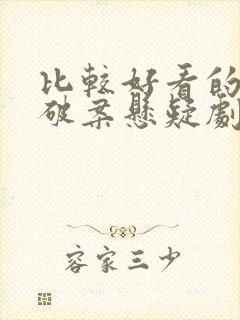 比較好看的
破案懸疑劇
容家三少